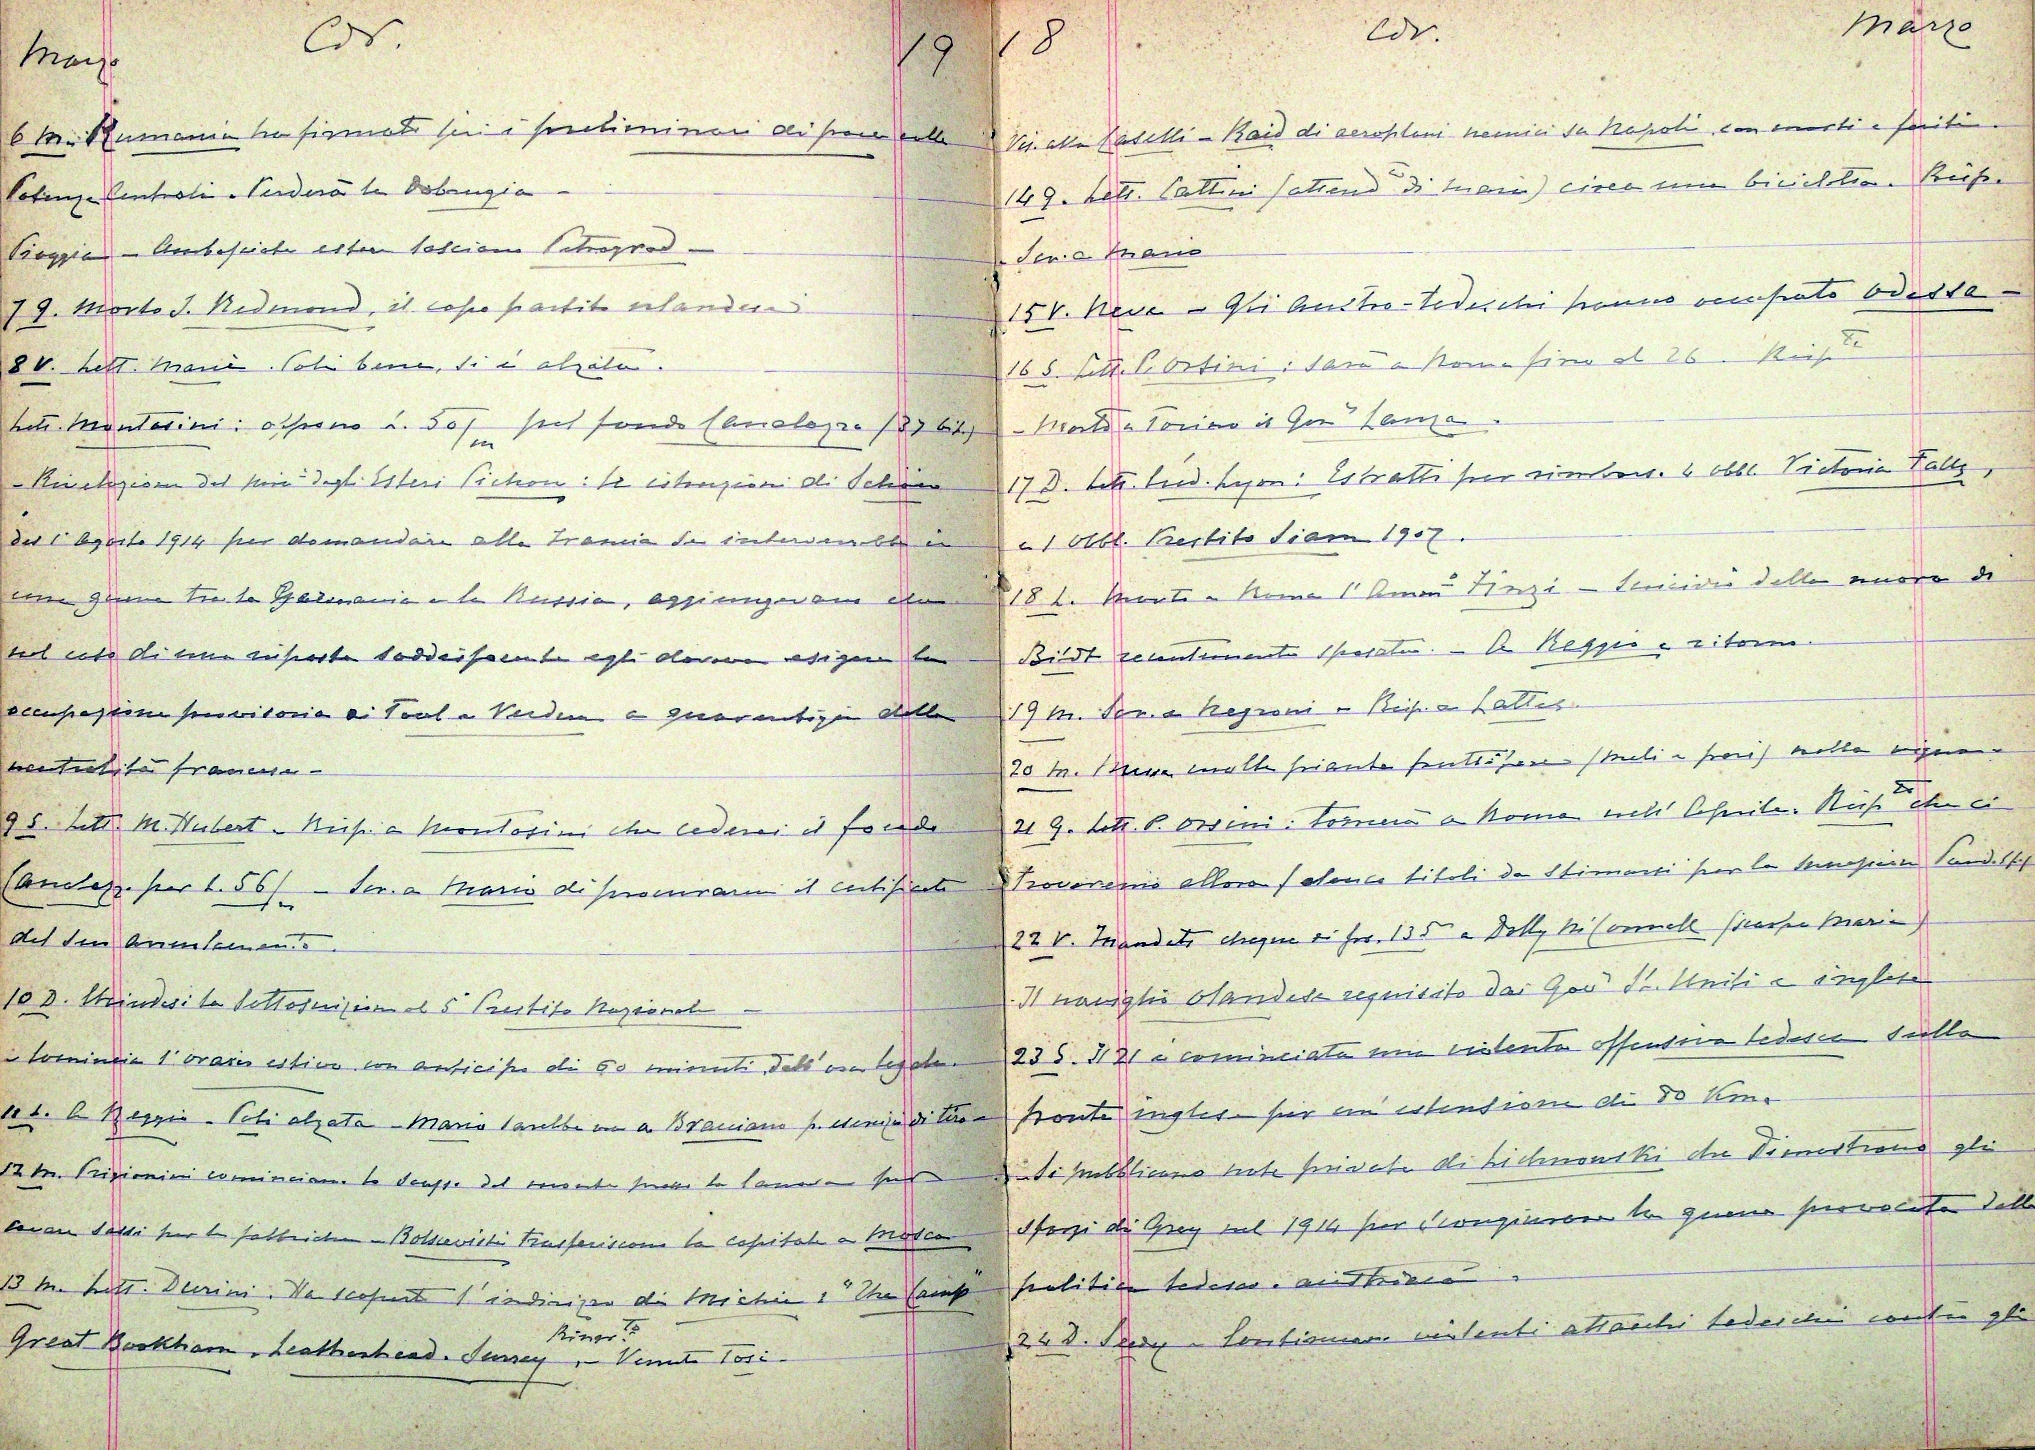 Marzo Cor. 19
6 M. Rumania ha firmato ieri i preliminari di pace colle
Potenze Centrali. Perderà la Dobrugia —
Pioggia — Ambasciate estere lasciano Petrograd —
7 G. Morto J. Redmond, il capo partito irlandese
8 V. Lett. Mario. Poli bene, si è alzata.
Lett. Montasini: offrono L. 50/m pel fondo Canalazzo (37 bil.)
— Rivelazioni del min° degli Esteri Pichon: le istruzioni di Schön
del 1° Agosto 1914 per domandare alla Francia se interverrebbe in
una guerra tra la Germania e la Russia, aggiungevano che
nel caso di una risposta soddisfacente egli doveva esigere la
occupazione provvisoria di Toul e Verdun a guarentigia della
neutralità francese —
9 S. Lett. M. Hubert — Risp. a Montasini che cederei il fondo
Canalazz. per L. 56/m — Scr. a Mario di procurarmi il certificato
del suo arruolamento.
10 D. Chiudesi la sottoscrizione al 5° Prestito Nazionale —
— Comincia l'orario estivo con anticipo di 60 minuti dell'ora legale.
11 L. A Reggio — Poli alzata — Mario sarebbe ora a Bracciano p. esercizi di tiro —
12 M. Prigionieri cominciano lo scavo del presso la per
cavare sassi per le fabbriche — Bolscevichi trasferiscono la capitale a Mosca
13 M. Lett. Durini. Ha scoperto l'indirizzo di Michie: "The Camp"
Great Bookham, Leatherhead. Surrey, Ringr.to — Venuto Tosi —
18 Cor. Marzo
Vis. alla Caselli — Raid di aeroplani nemici su Napoli con morti e feriti —
14 G. Lett. Cattini (attend.e di Mario) circa una bicicletta. Risp.
— Scr. a Mario
15 V. Neve — Gli Austro-tedeschi hanno occupato Odessa —
16 S. Lett. P. Orsini: sarà a Roma fino al 26. Risp.to
— Morto a Torino il Gen.le Lanza.
17 D. Lett. Créd. Lyon: Estratti per rimbors. 4 obbl. Victoria Falls,
e 1 obbl. Prestito Siam 1907.
18 L. Morto a Roma l'Amm° Finzi — Suicidio della nuora di
Bildt recentemente sposata. — A Reggio e ritorno.
19 M. Scr. a Negroni — Risp. a Lattes.
20 M. Messe molte piante fruttifere (meli e peri) nella vigna —
21 G. Lett. P. Orsini: tornerà a Roma nell'Aprile. Risp.to che ci
troveremo allora (elenco titoli da stimarsi per la successione Pandolfi)
22 V. Mandato cheque di frs. 135 a Dolly (scarpe Maria)
— Il naviglio olandese requisito dai Gov.i St. Uniti e inglese
23 S. Il 21 è cominciata una violenta offensiva tedesca sulla
fronte inglese per un'estensione di 80 Km.
— Si pubblicano note private di Lichnowski che dimostrano gli
sforzi di Grey nel 1914 per scongiurare la guerra provocata dalla
politica tedesca e austriaca.
24 D. — Continuano violenti attacchi tedeschi contro gli